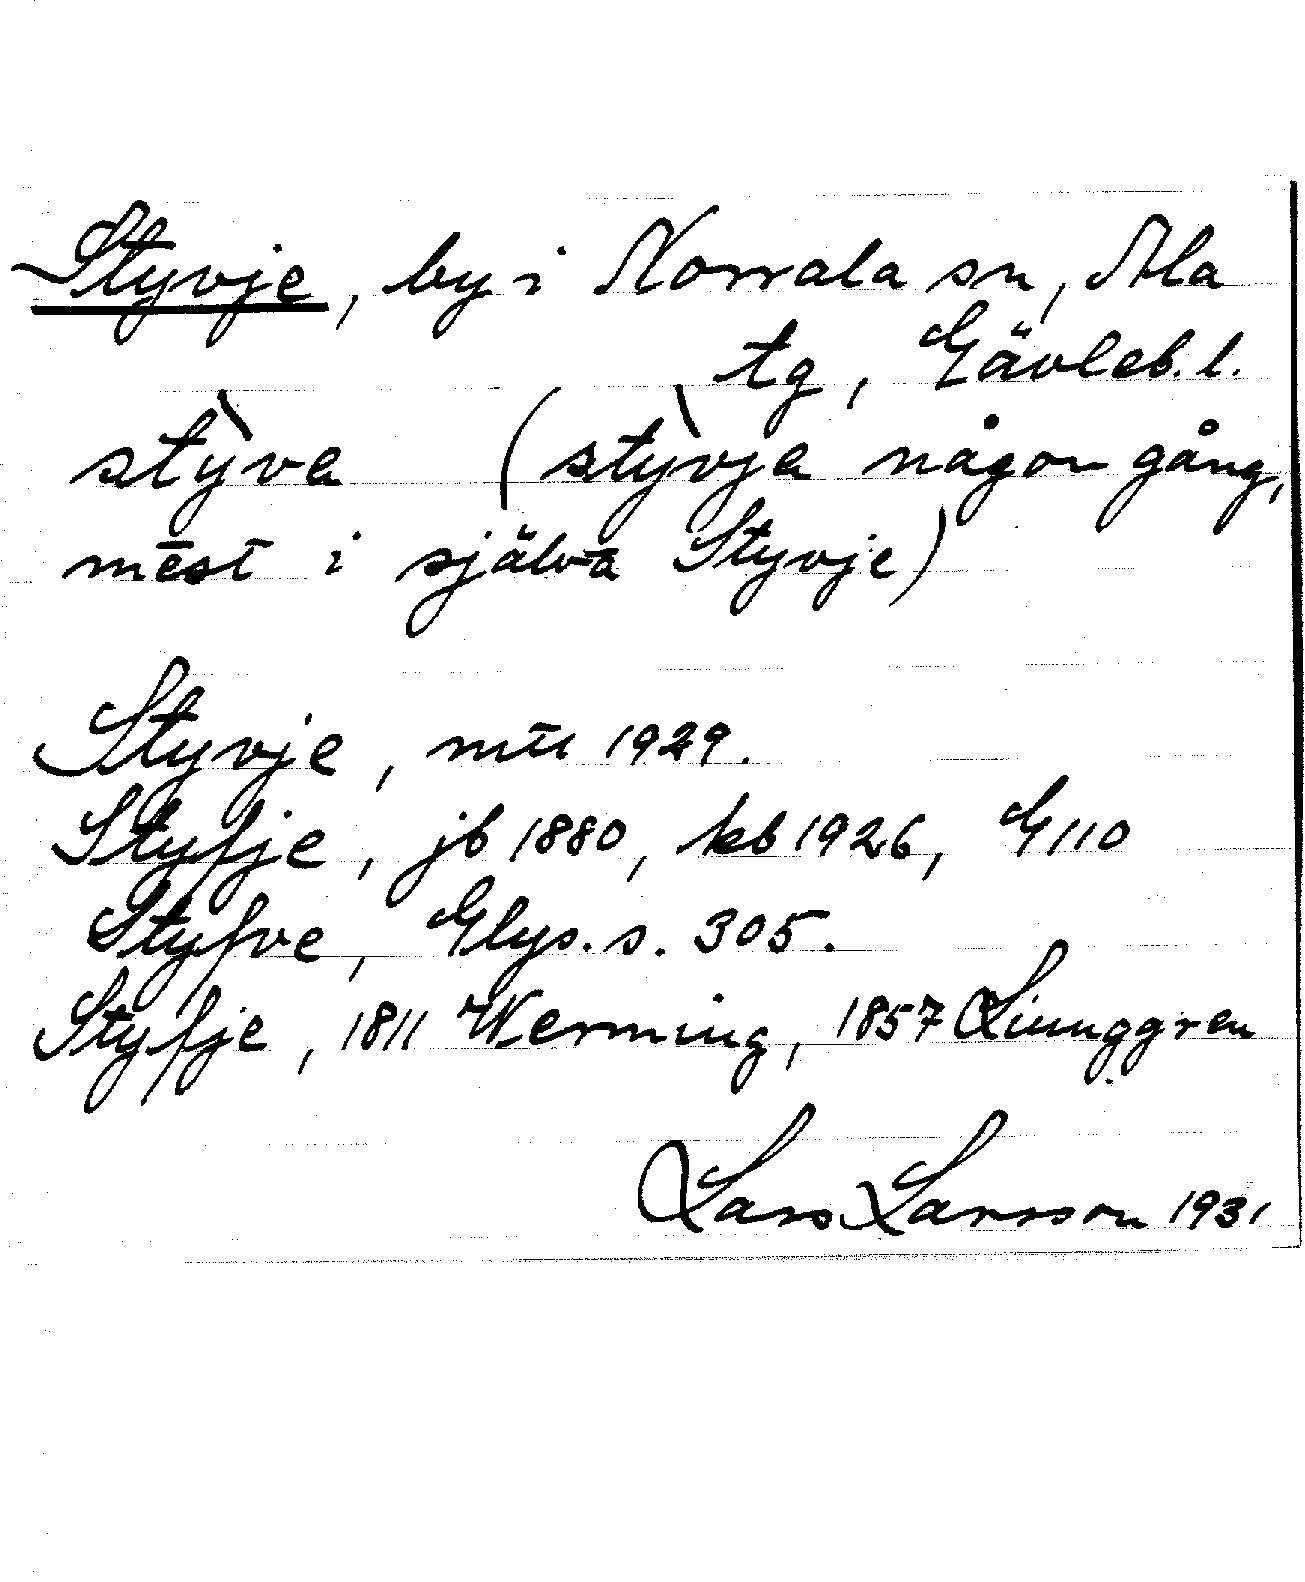 Styvje, by i Norrala sn, Ala
tg, Gävleb. l.
stỳva (stỳvja någon gång,
mest i själva Styvje)
Styvje, mtl 1929.
Styfje, jb 1880, kb 1926, G110
Styfve, Glys. s. 305.
Styfje, 1811 Werming, 1857 Ljunggren
Lars Larsson 1931